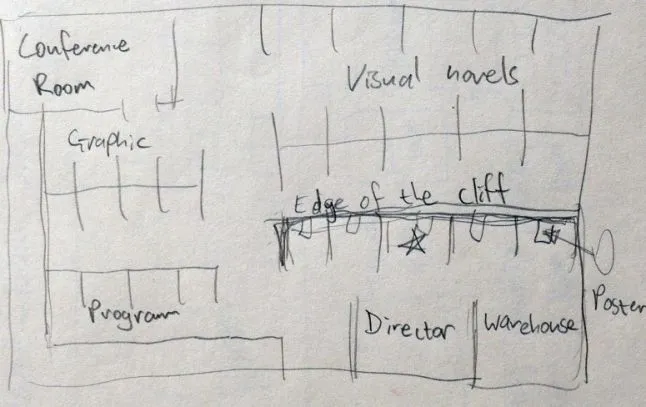 Conference
Room
Visual novels
Graphic
Edge of the cliff
Program
Director
Warehouse
Poster